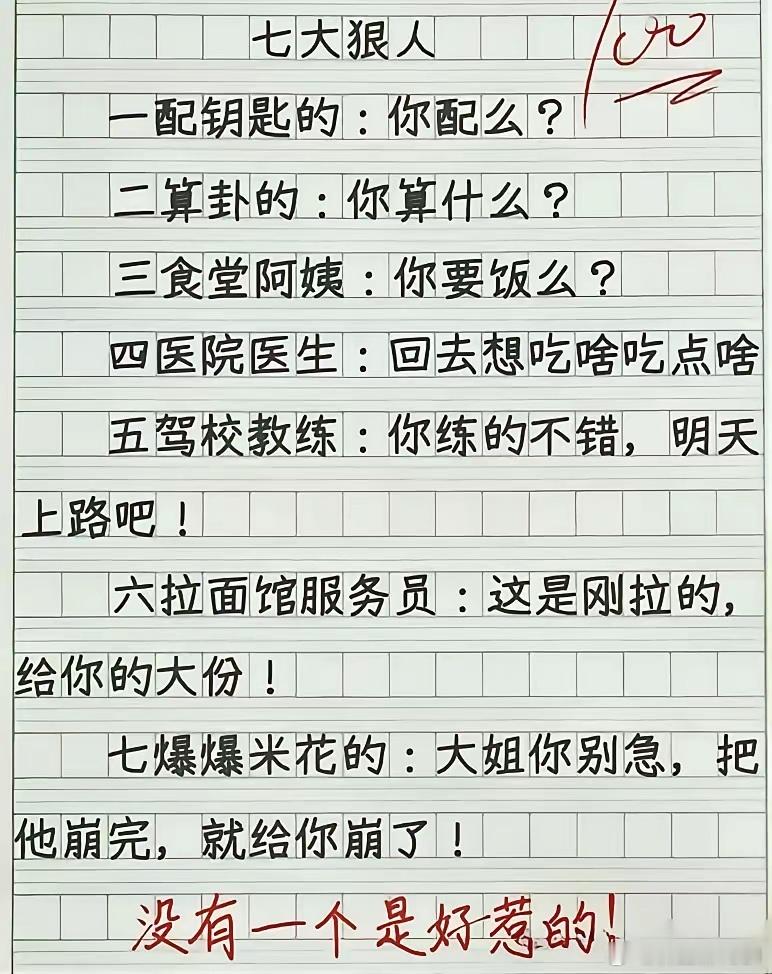 七大狠人
100
一配钥匙的:你配么?
二算卦的:你算什么?
三食堂阿姨:你要饭么?
四医院医生:回去想吃啥吃点啥
五驾校教练:你练的不错,明天
上路吧!
六拉面馆服务员:这是刚拉的,
给你的大份!
七爆爆米花的:大姐你别急,把
他崩完,就给你崩了!
没有一个是好惹的!